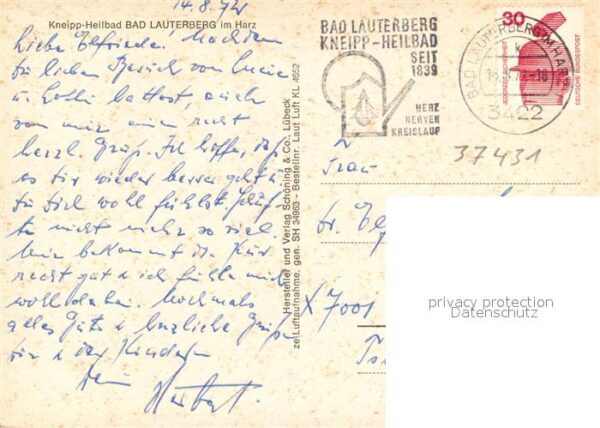 14.8.74
Kneipp-Heilbad BAD LAUTERBERG im Harz
Liebe Elfriede! Nachdem
Du lieben Besuch von
u. hattest, auch
von mir einen recht
herzl. Gruß. Ich hoffe, daß
es Dir wieder besser geht u.
Du Dich wohl fühlst.
nicht mehr so viel.
Mir bekommt die Kur
recht gut u. ich fühle mich
wohl dabei. Nochmals
alles Gute u. herzliche Grüße
Dir u. den Kindern
Dein
Herbert.
Hersteller und Verlag Schöning & Co., Lübeck
ze Luftaufnahme, gen. SH 34963 - Bestellnr. Laut Luft KL 4652
BAD LAUTERBERG
KNEIPP-HEILBAD
SEIT
1839
HERZ
NERVEN
KREISLAUF
BAD LAUTERBERG IM HARZ
k
3422
30
JEDERZEIT SICHERHEIT
DEUTSCHE BUNDESPOST
37431
Frau
X 7001
privacy protection
Datenschutz